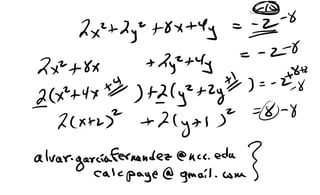 2x²+2y²+8x+4y = -2-8
2x²+8x +2y²+4y = -2-8
2(x²+4x+4)+2(y²+2y+1)=-2+8+2-8
2(x+2)² +2(y+1)² = 8-8
alvar.garciafernandez@ncc.edu
calcpage@gmail.com